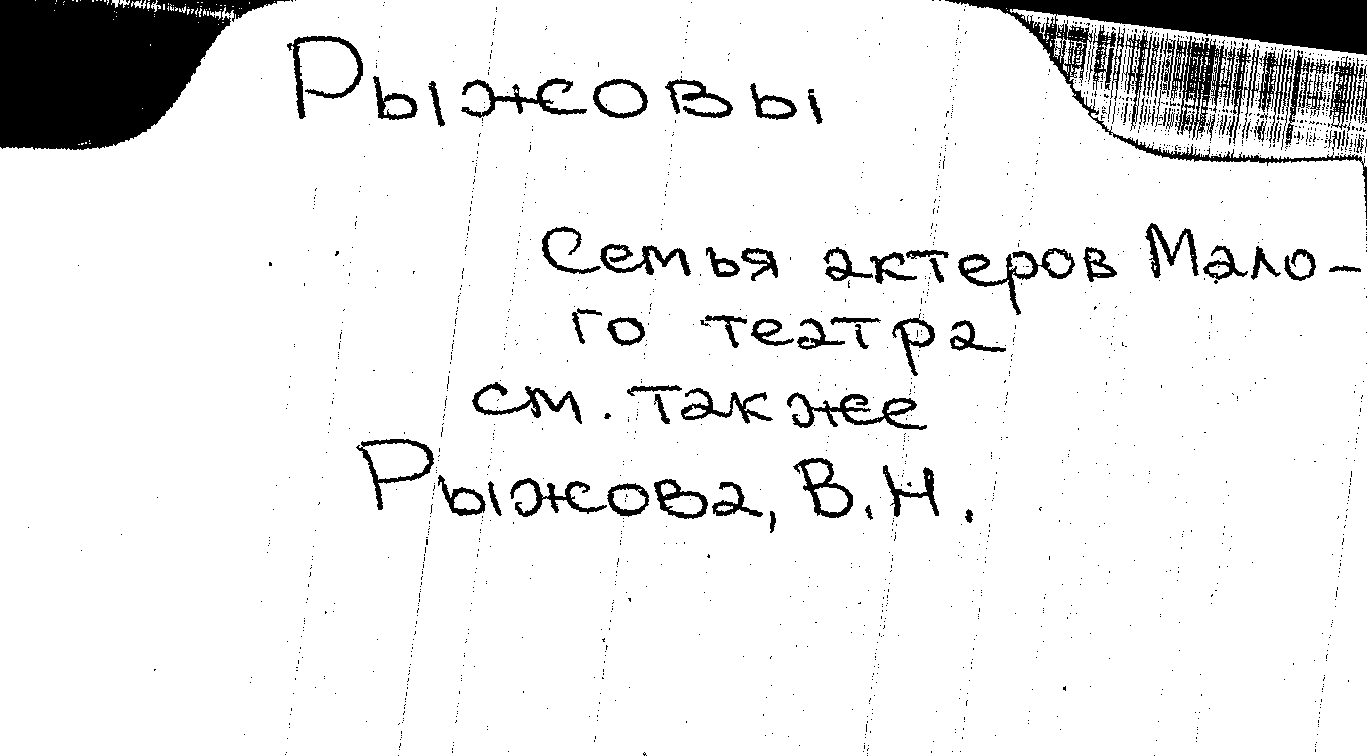 Рыжовы
Семья актеров Мало-
го театра
см. также
Рыжова, В.Н.